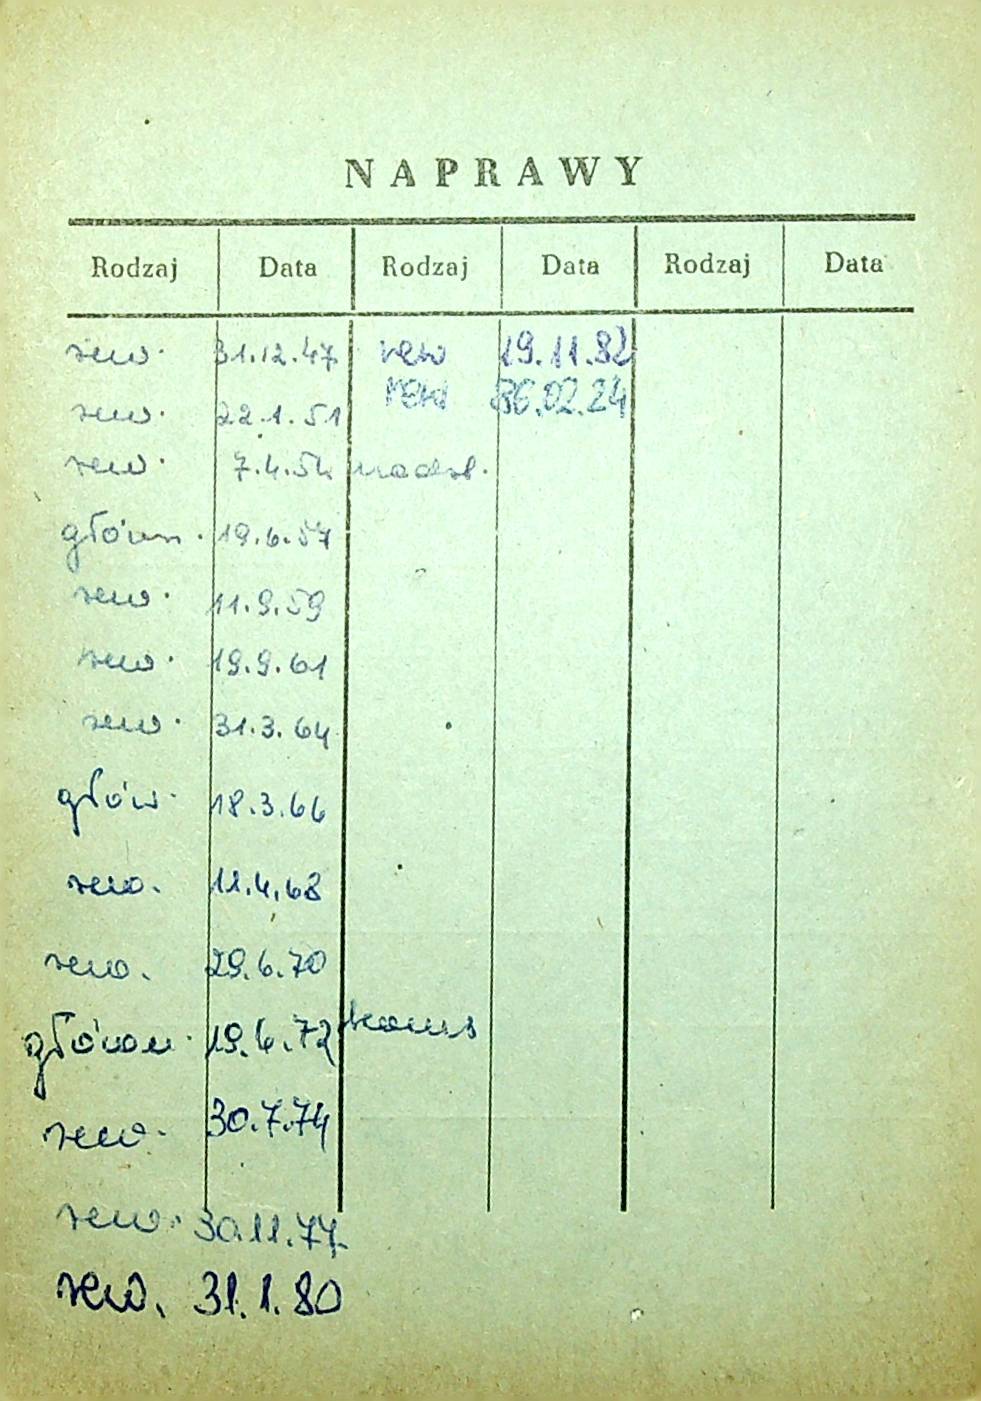 NAPRAWY
Rodzaj Data Rodzaj Data Rodzaj Data
rew. 31.12.47 rew 19.11.82
rew 86.02.24
rew. 22.1.51
rew. 7.4.54 nadzl.
główn. 19.6.57
rew. 11.9.59
rew. 19.9.61
rew. 31.3.64
głów. 18.3.66
rew. 11.4.68
rew. 29.6.70
główn. 19.6.72
rew. 30.7.74
rew. 30.11.77
rew. 31.1.80